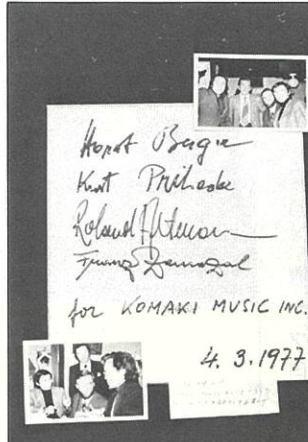 Horst Berger
Kurt Prihoda
Roland Altmann
Franz Zamazal
for KOMAKI MUSIC INC.
4. 3. 1977